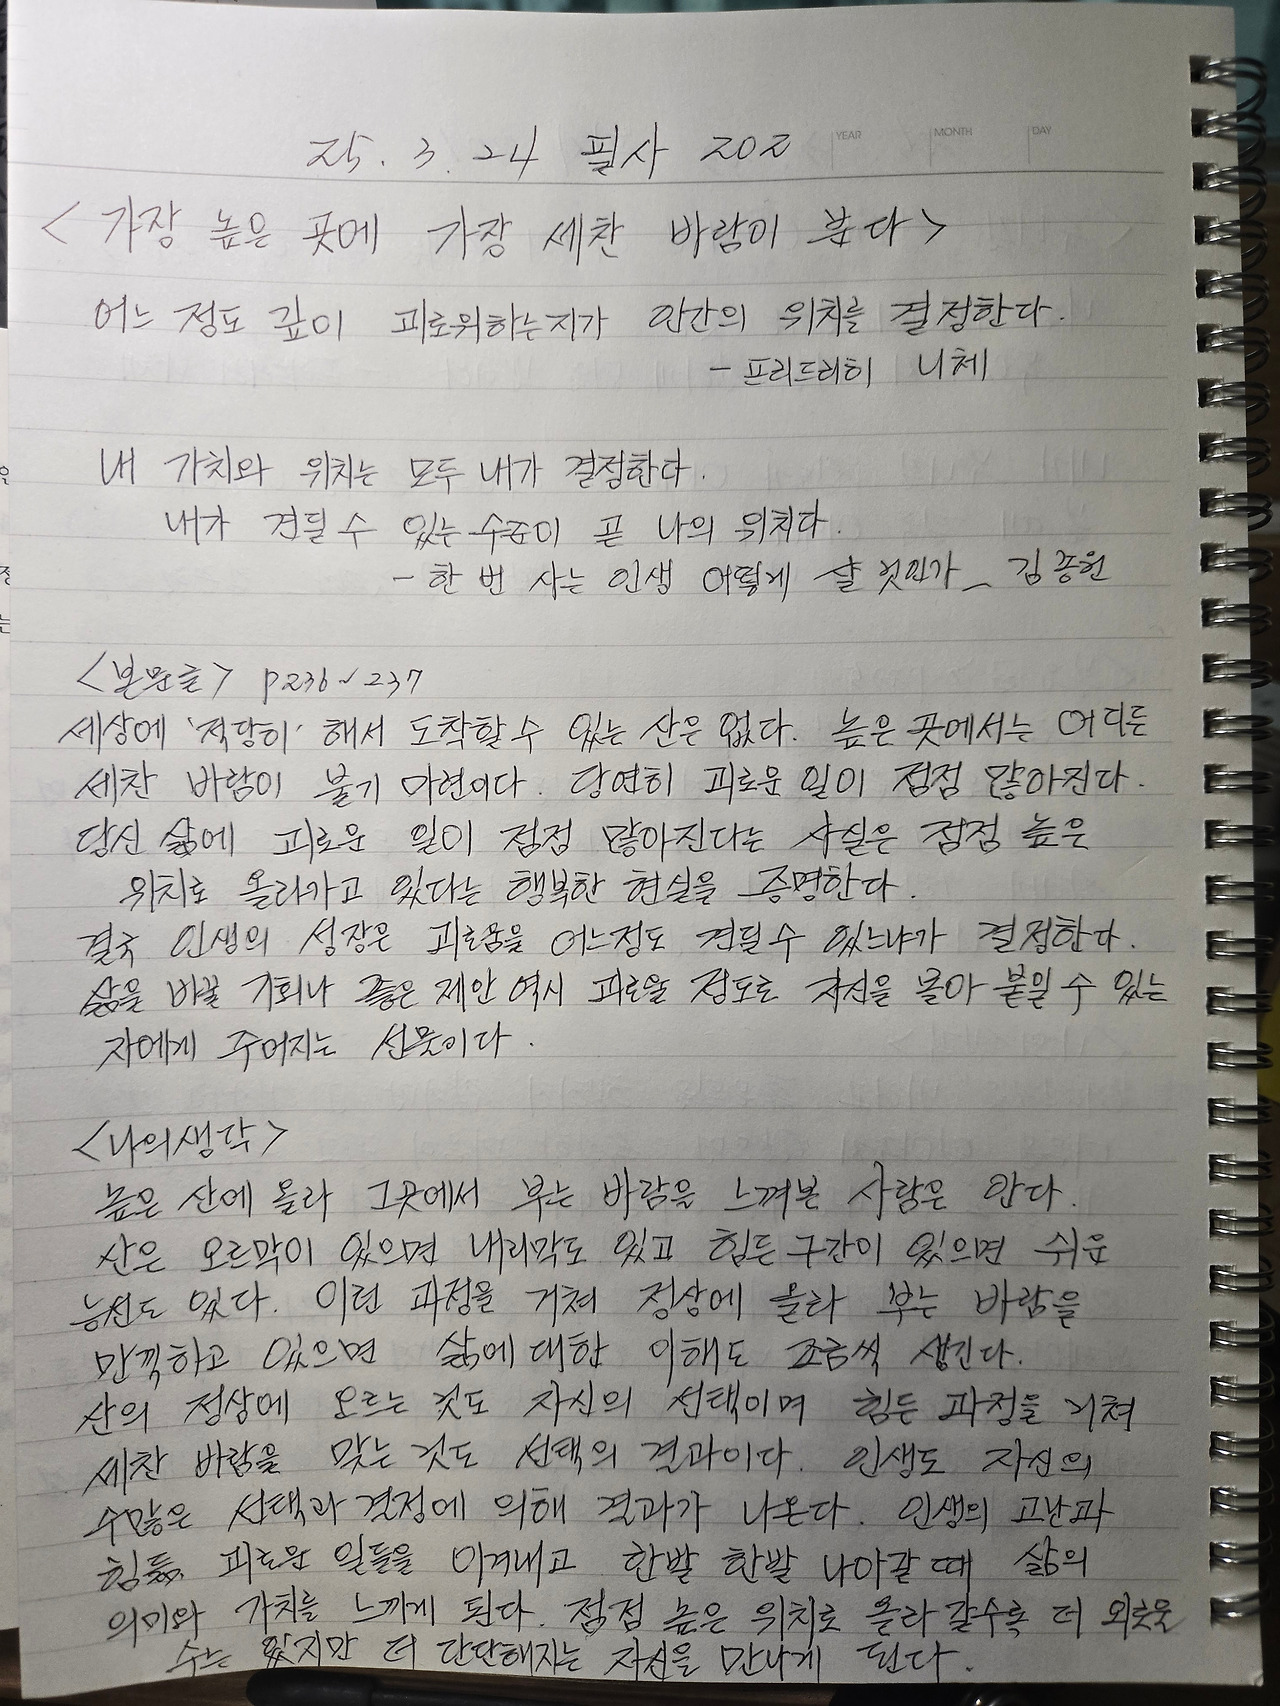 25. 3. 24 필사 202
YEAR MONTH DAY
< 가장 높은 곳에 가장 세찬 바람이 분다 >
어느 정도 깊이 괴로워하는지가 인간의 위치를 결정한다.
- 프리드리히 니체
내 가치와 위치는 모두 내가 결정한다.
내가 견딜 수 있는 수준이 곧 나의 위치다.
- 한 번 사는 인생 어떻게 살 것인가_ 김종원
<본문글> p236~237
세상에 '적당히' 해서 도착할 수 있는 산은 없다. 높은 곳에서는 어디든
세찬 바람이 불기 마련이다. 당연히 괴로운 일이 점점 많아진다.
당신 삶에 괴로운 일이 점점 많아진다는 사실은 점점 높은
위치로 올라가고 있다는 행복한 현실을 증명한다.
결국 인생의 성장은 괴로움을 어느정도 견딜 수 있느냐가 결정한다.
삶을 바꿀 기회나 좋은 제안 역시 괴로울 정도로 자신을 몰아 붙일 수 있는
자에게 주어지는 선물이다.
<나의생각>
높은 산에 올라 그곳에서 부는 바람을 느껴본 사람은 안다.
산은 오르막이 있으면 내리막도 있고 힘든 구간이 있으면 쉬운
능선도 있다. 이런 과정을 거쳐 정상에 올라 부는 바람을
만끽하고 있으면 삶에 대한 이해도 조금씩 생긴다.
산의 정상에 오르는 것도 자신의 선택이며 힘든 과정을 거쳐
세찬 바람을 맞는 것도 선택의 결과이다. 인생도 자신의
수많은 선택과 결정에 의해 결과가 나온다. 인생의 고난과
힘듦, 괴로운 일들을 이겨내고 한발 한발 나아갈 때 삶의
의미와 가치를 느끼게 된다. 점점 높은 위치로 올라 갈수록 더 외로울
수는 있지만 더 단단해지는 자신을 만나게 된다.